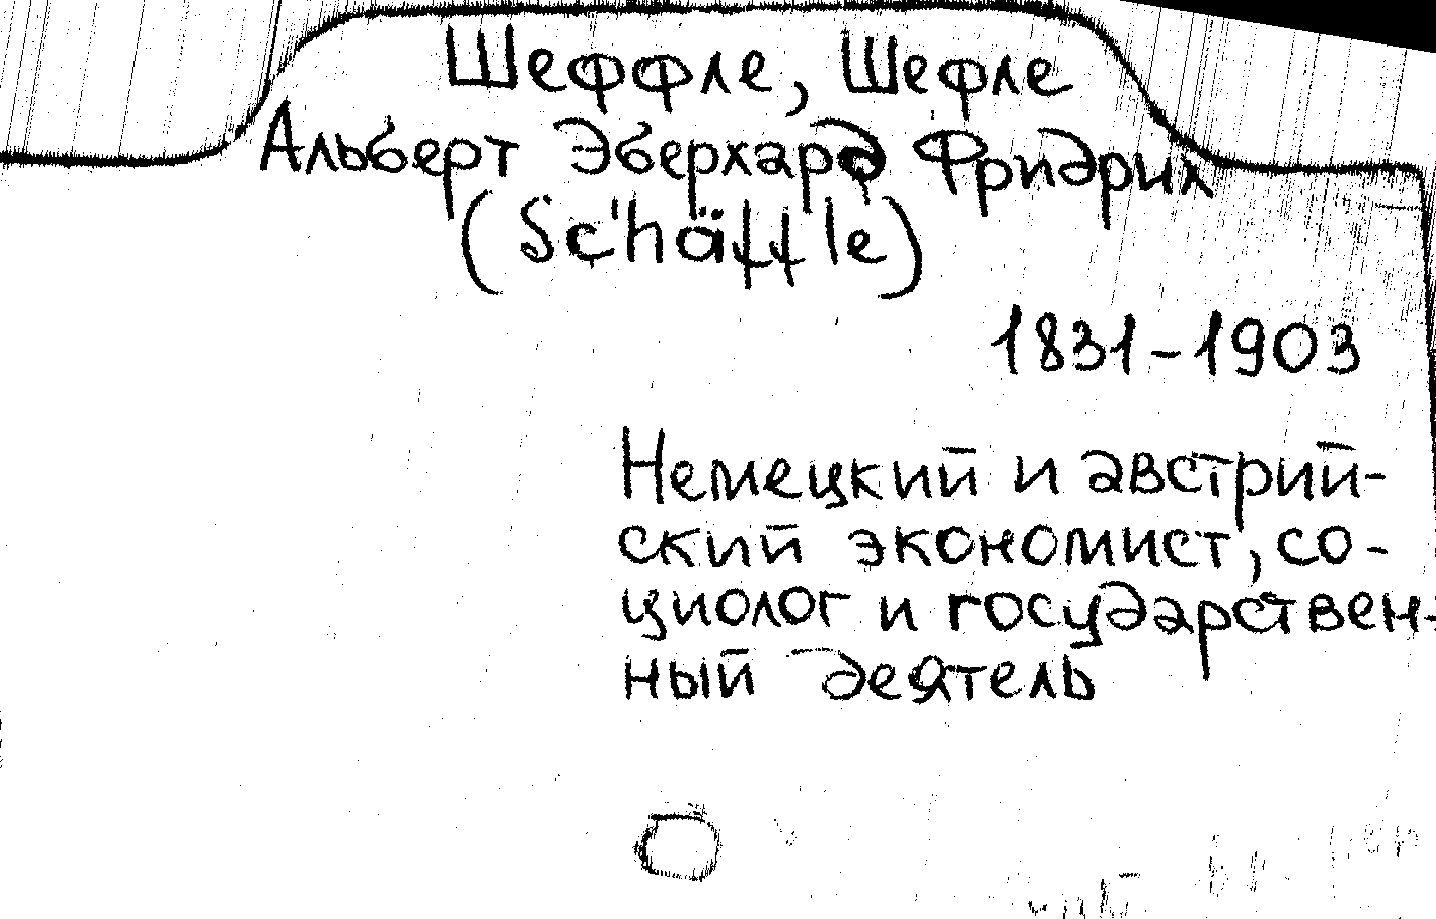 Шеффле, Шефле
Альберт Эберхард Фридрих
(Schäffle)
1831-1903
Немецкий и австрий-
ский экономист, со-
циолог и государствен-
ный деятель